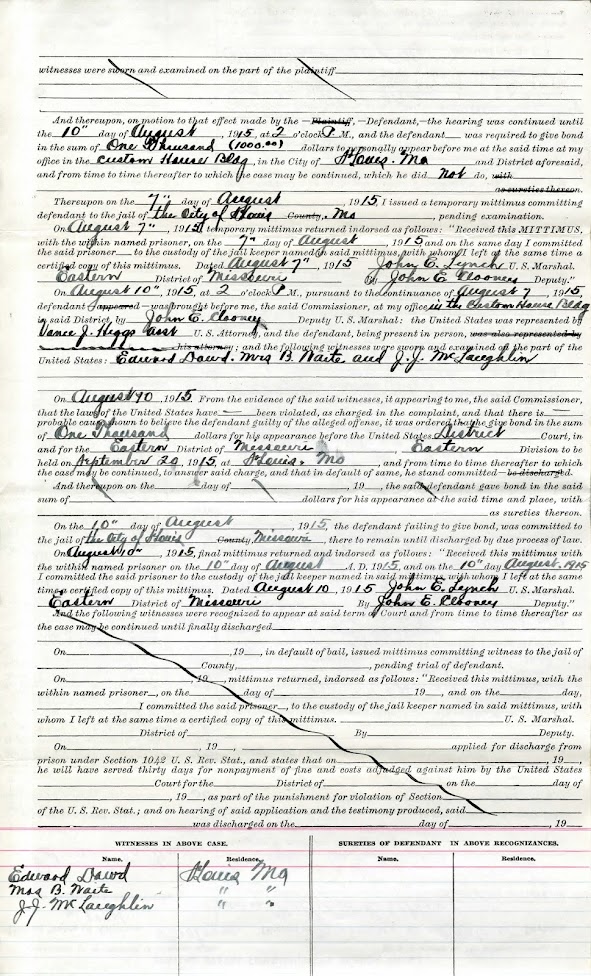 witnesses were sworn and examined on the part of the plaintiff
And thereupon, on motion to that effect made by the —Plaintiff, —Defendant,—the hearing was continued until
the 10" day of August, 1915, at 2 o'clock P M., and the defendant was required to give bond
in the sum of One Thousand (1000.00) dollars to personally appear before me at the said time at my
office in the Custom House Bldg, in the City of St Louis. Mo and District aforesaid,
and from time to time thereafter to which the case may be continued, which he did not do, with
as sureties thereon.
Thereupon on the 7" day of August 1915 I issued a temporary mittimus committing
defendant to the jail of the City of St Louis County, Mo, pending examination.
On August 7", 1915, temporary mittimus returned indorsed as follows: "Received this MITTIMUS,
with the within named prisoner, on the 7" day of August, 1915 and on the same day I committed
the said prisoner to the custody of the jail keeper named in said mittimus, with whom I left at the same time a
certified copy of this mittimus. Dated August 7", 1915 John E. Lynch U.S. Marshal.
Eastern District of Missouri By John E. Clooney Deputy."
On August 10", 1915, at 2 o'clock P M., pursuant to the continuance of August 7, 1915,
defendant appeared — was brought before me, the said Commissioner, at my office in the Custom House Bldg
in said District, by John E. Clooney Deputy U. S. Marshal: the United States was represented by
Vance J. Higgs asst U. S. Attorney, and the defendant, being present in person, was also represented by
his attorney; and the following witnesses were sworn and examined on the part of the
United States: Edward Dowd. Mrs B. Waite and J.J. McLaughlin
On August 10, 1915. From the evidence of the said witnesses, it appearing to me, the said Commissioner,
that the laws of the United States have — been violated, as charged in the complaint, and that there is —
probable cause shown to believe the defendant guilty of the alleged offense, it was ordered that he give bond in the sum
of One Thousand dollars for his appearance before the United States District Court, in
and for the Eastern District of Missouri, Eastern Division to be
held on September 20, 1915, at St Louis. Mo, and from time to time thereafter to which
the case may be continued, to answer said charge, and that in default of same, he stand committed — be discharged.
And thereupon on the day of, 19, the said defendant gave bond in the said
sum of dollars for his appearance at the said time and place, with
as sureties thereon.
On the 10" day of August, 1915, the defendant failing to give bond, was committed to
the jail of the City of St Louis County, Missouri, there to remain until discharged by due process of law.
On August 10", 1915, final mittimus returned and indorsed as follows: "Received this mittimus with
the within named prisoner on the 10" day of August A. D. 1915, and on the 10" day August. 1915
I committed the said prisoner to the custody of the jail keeper named in said mittimus, with whom I left at the same
time a certified copy of this mittimus. Dated August 10, 1915 John E. Lynch U. S. Marshal.
Eastern District of Missouri By John E. Clooney Deputy."
And the following witnesses were recognized to appear at said term of Court and from time to time thereafter as
the case may be continued until finally discharged
On, 19, in default of bail, issued mittimus committing witness to the jail of
County, pending trial of defendant.
On, 19, mittimus returned, indorsed as follows: "Received this mittimus, with the
within named prisoner, on the day of 19, and on the day,
I committed the said prisoner, to the custody of the jail keeper named in said mittimus, with
whom I left at the same time a certified copy of this mittimus. U. S. Marshal.
District of By Deputy.
On, 19, applied for discharge from
prison under Section 1042 U. S. Rev. Stat., and states that on, 19,
he will have served thirty days for nonpayment of fine and costs adjudged against him by the United States
Court for the District of on the day of
, 19, as part of the punishment for violation of Section
of the U. S. Rev. Stat.; and on hearing of said application and the testimony produced, said
was discharged on the day of, 19
WITNESSES IN ABOVE CASE. SURETIES OF DEFENDANT IN ABOVE RECOGNIZANCES.
Name. Residence. Name. Residence.
Edward Dowd St Louis Mo
Mrs B. Waite " "
J.J. McLaughlin " "